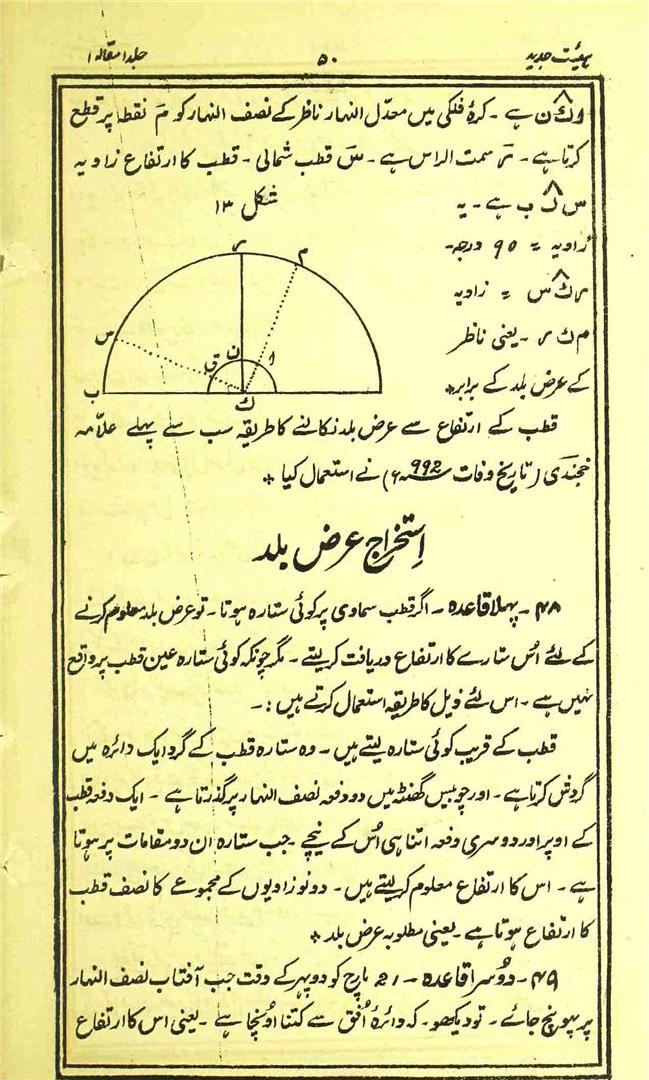 ہیئت جدید ۵۰ جلد ۱ مقالہ ۱
اکن ہے ۔ کرۂ فلکی میں معدّل النہار ناظر کے نصف النہار کو مَ نقطہ پر قطع
کرتا ہے ۔ رَ سمت الراس ہے ۔ سَ قطب شمالی ۔ قطب کا ارتفاع زاویہ
س ک ب ہے ۔ یہ
شکل ۱۳
زاویہ = ۹۰ درجہ ۔
ر ک س = زاویہ
م ک ر ۔ یعنی ناظر
کے عرض بلد کے برابر *
ر
م
س
ق
ن
ا
ب
ک
قطب کے ارتفاع سے عرض بلد نکالنے کا طریقہ سب سے پہلے علاّمہ
خجندی (تاریخ وفات ۹۹۲ء) نے استعمال کیا *
اِستخراج عرض بلد
۴۸ ۔ پہلا قاعدہ ۔ اگر قطب سماوی پر کوئی ستارہ ہوتا ۔ تو عرض بلد معلوم کرنے
کے لئے اُس ستارے کا ارتفاع دریافت کر لیتے ۔ مگر چونکہ کوئی ستارہ عین قطب پر واقع
نہیں ہے ۔ اس لئے ذیل کا طریقہ استعمال کرتے ہیں :۔
قطب کے قریب کوئی ستارہ لیتے ہیں ۔ وہ ستارہ قطب کے گرد ایک دائرہ میں
گردش کرتا ہے ۔ اور چوبیس گھنٹہ میں دو دفعہ نصف النہار پر گذرتا ہے ۔ ایک دفعہ قطب
کے اوپر اور دوسری دفعہ اتنا ہی اُس کے نیچے ۔ جب ستارہ ان دو مقامات پر ہوتا
ہے ۔ اس کا ارتفاع معلوم کر لیتے ہیں ۔ دونو زاویوں کے مجموعے کا نصف قطب
کا ارتفاع ہوتا ہے ۔ یعنی مطلوبہ عرض بلد *
۴۹ ۔ دُوسرا قاعدہ ۔ ۲۱ مارچ کو دوپہر کے وقت جب آفتاب نصف النہار
پر پہونچ جائے ۔ تو دیکھو ۔ کہ دائرۂ اُفق سے کتنا اُونچا ہے ۔ یعنی اس کا ارتفاع